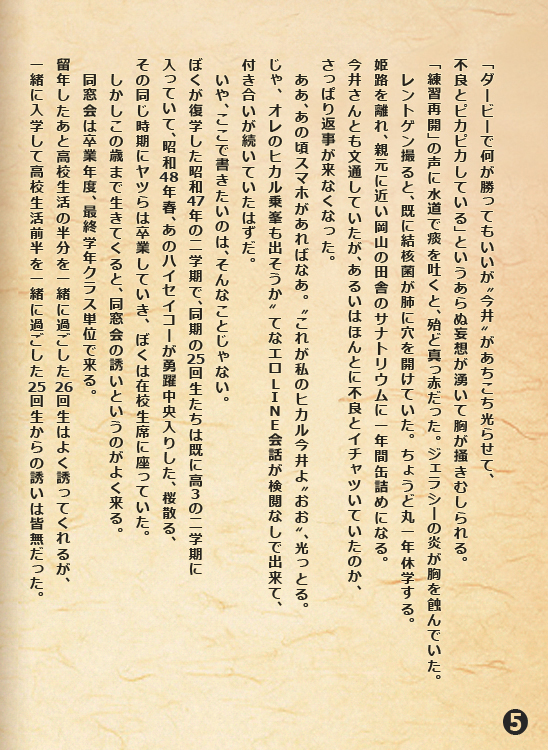 「ダービーで何が勝ってもいいが〝今井〟があちこち光らせて、
不良とピカピカしている」というあらぬ妄想が湧いて胸が掻きむしられる。
「練習再開」の声に水道で痰を吐くと、殆ど真っ赤だった。ジェラシーの炎が胸を蝕んでいた。
レントゲン撮ると、既に結核菌が肺に穴を開けていた。ちょうど丸一年休学する。
姫路を離れ、親元に近い岡山の田舎のサナトリウムに一年間缶詰めになる。
今井さんとも文通していたが、あるいはほんとに不良とイチャツいていたのか、
さっぱり返事が来なくなった。
ああ、あの頃スマホがあればなあ。〝これが私のヒカル今井よ〟おお〟、光っとる。
じゃ、オレのヒカル乗峯も出そうか〟てなエロLINE会話が検閲なしで出来て、
付き合いが続いていたはずだ。
いや、ここで書きたいのは、そんなことじゃない。
ぼくが復学した昭和47年の二学期で、同期の25回生たちは既に高3の二学期に
入っていて、昭和48年春、あのハイセイコーが勇躍中央入りした、桜散る、
その同じ時期にヤツらは卒業していき、ぼくは在校生席に座っていた。
しかしこの歳まで生きてくると、同窓会の誘いというのがよく来る。
同窓会は卒業年度、最終学年クラス単位で来る。
留年したあと高校生活の半分を一緒に過ごした26回生はよく誘ってくれるが、
一緒に入学して高校生活前半を一緒に過ごした25回生からの誘いは皆無だった。
5